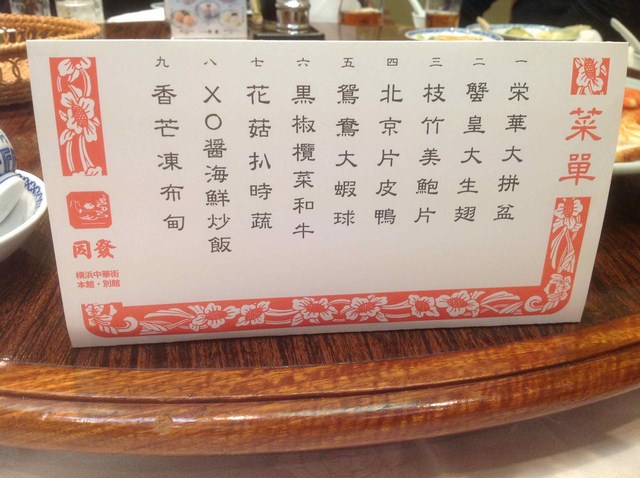 菜單
一 栄華大拼盆
二 蟹皇大生翅
三 枝竹美鮑片
四 北京片皮鴨
五 鴛鴦大蝦球
六 黒椒欖菜和牛
七 花菇扒時蔬
八 XO醤海鮮炒飯
九 香芒凍布甸
同發
横浜中華街
本館・別館